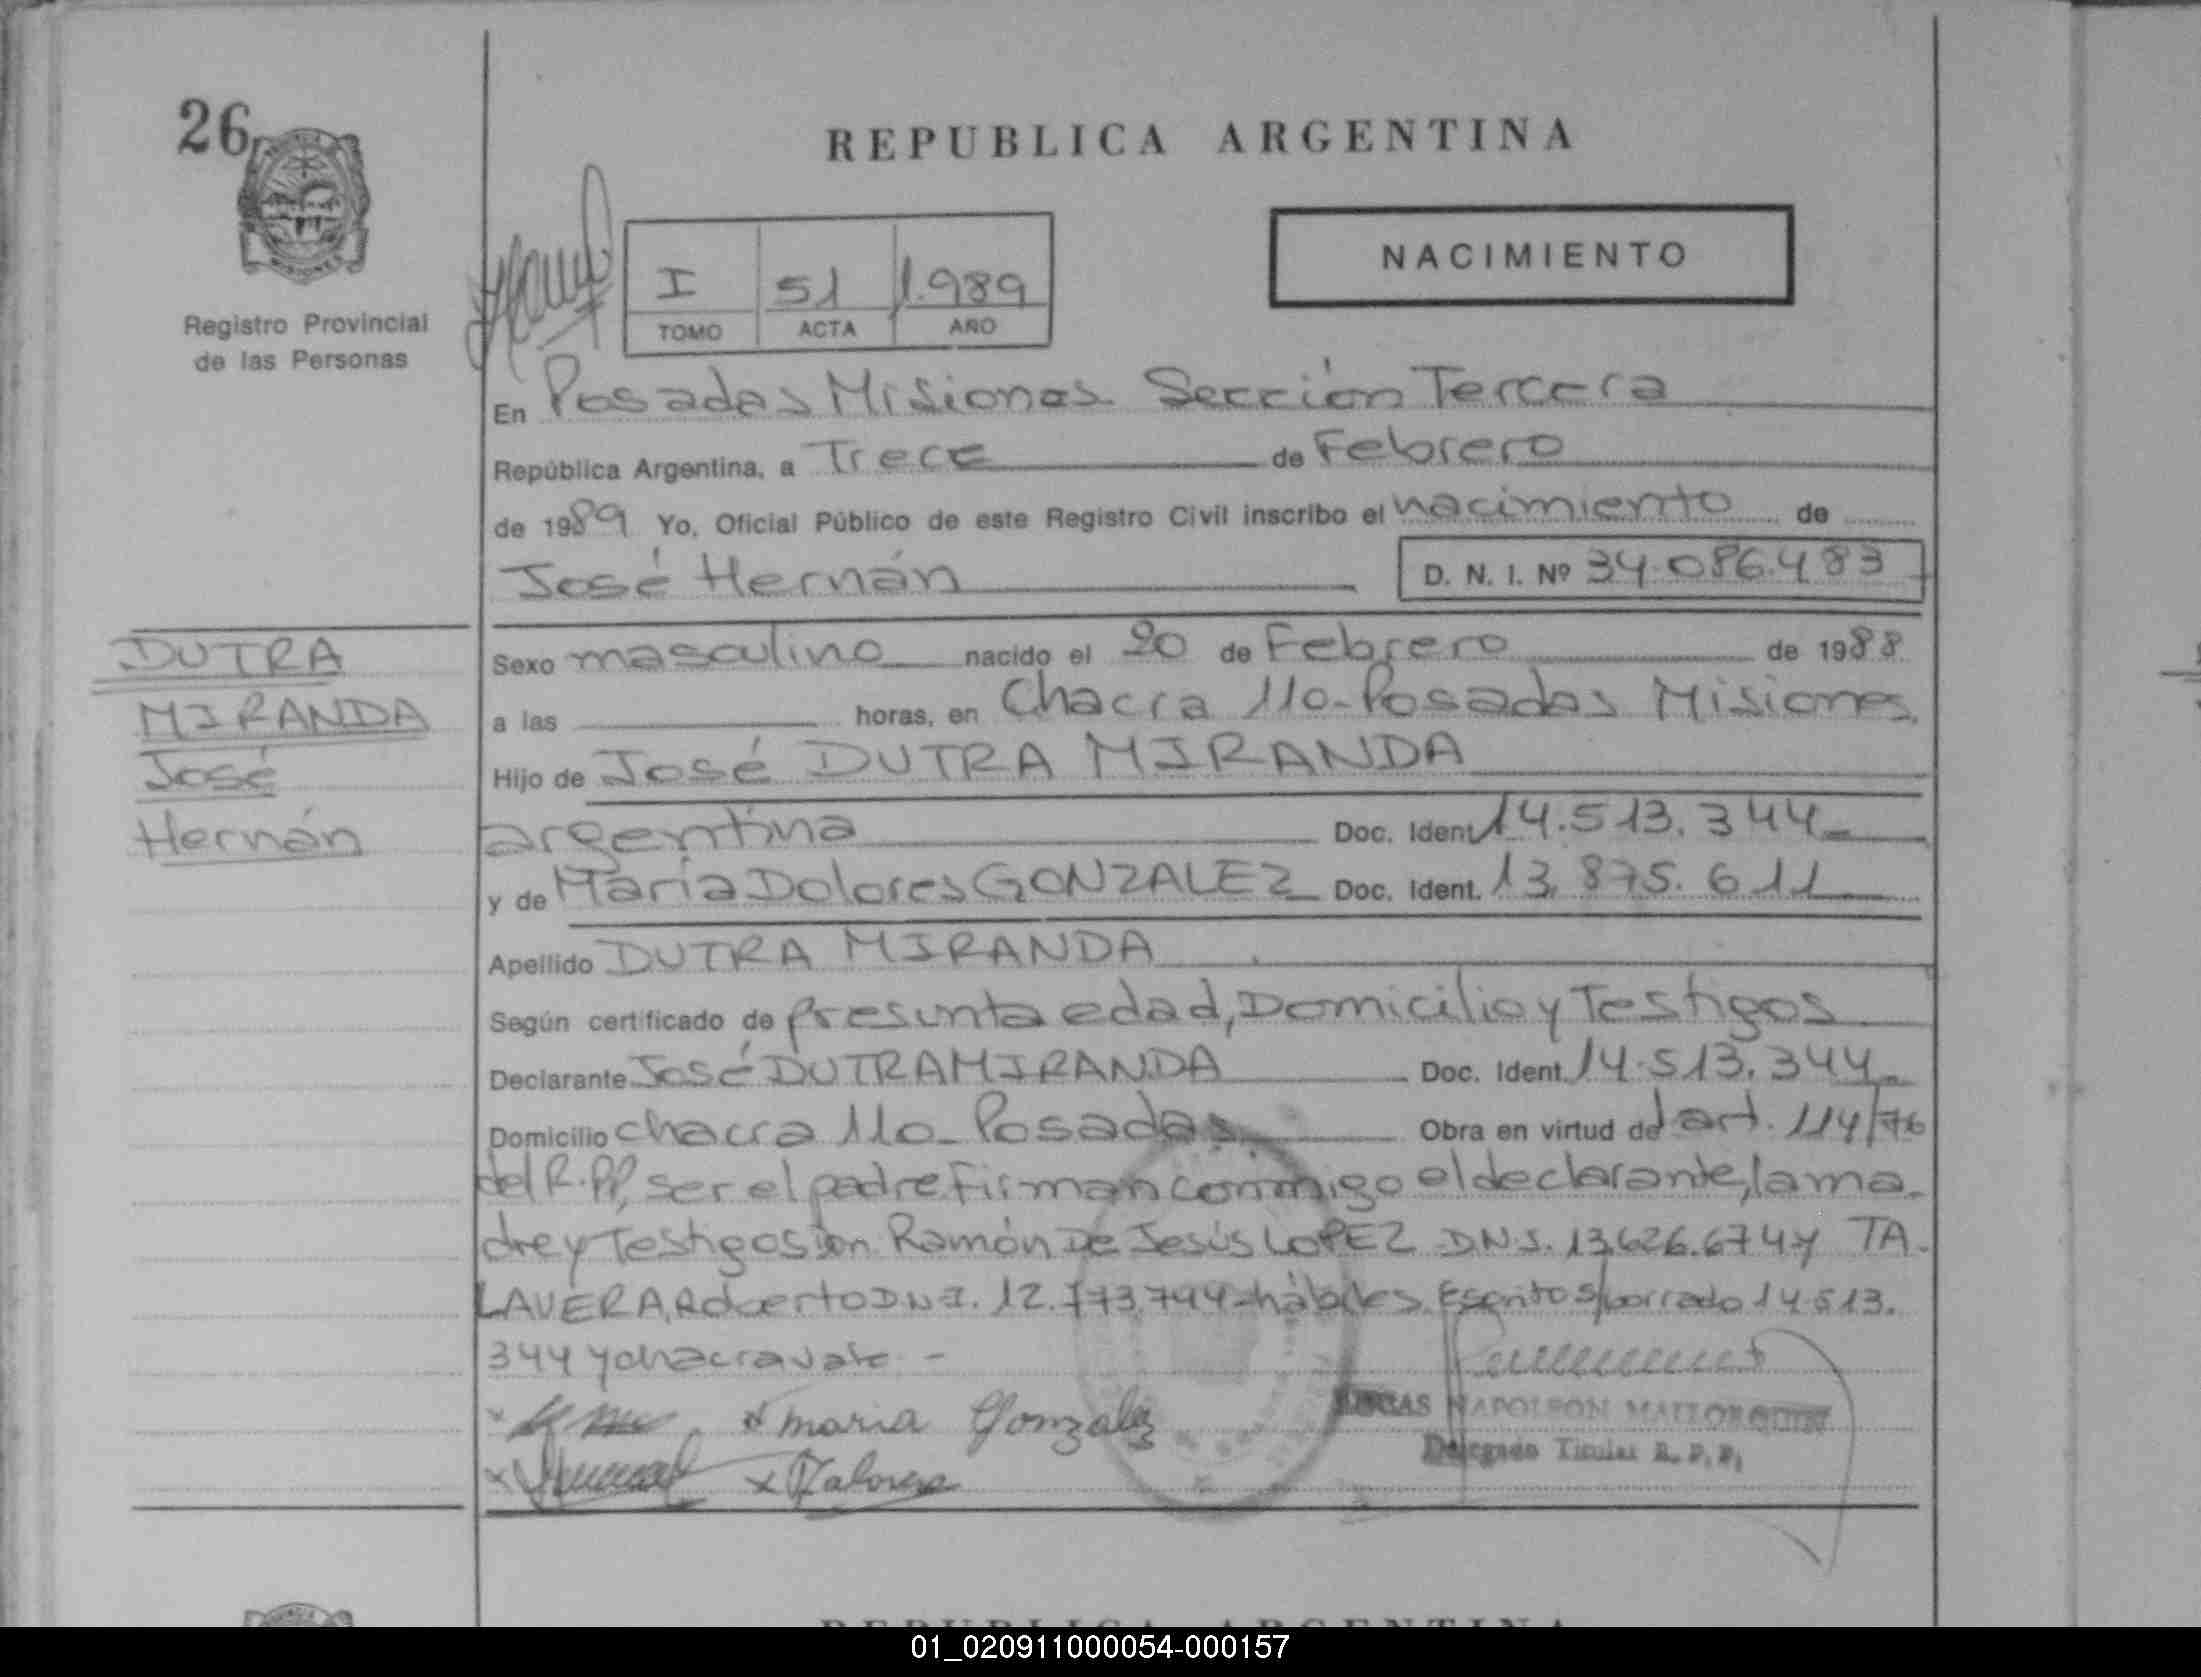 26
REPUBLICA ARGENTINA
MISIONES
Registro Provincial
de las Personas
I 51 1.989
TOMO ACTA AÑO
NACIMIENTO
En Posadas Misiones Sección Tercera
República Argentina, a Trece de Febrero
de 1989 Yo, Oficial Público de este Registro Civil inscribo el nacimiento de
José Hernán D. N. I. Nº 34.086.483
DUTRA
MIRANDA
José
Hernán
Sexo masculino nacido el 20 de Febrero de 1988
a las horas, en Chacra 110-Posadas Misiones.
Hijo de José DUTRA MIRANDA
argentina Doc. Ident. 14.513.344
y de María Dolores GONZALEZ Doc. Ident. 13.875.611
Apellido DUTRA MIRANDA
Según certificado de presunta edad, Domicilio y Testigos
Declarante José DUTRA MIRANDA Doc. Ident. 14.513.344
Domicilio chacra 110- Posadas Obra en virtud de art. 114/76
del R.PP, ser el padre Firman conmigo el declarante, la ma-
dre y Testigos Ramón De Jesús LOPEZ DNI. 13.626.674 y TA-
LAVERA, Roberto DNI. 12. hábiles. Escrito s/borrado 14.513.
344 y chacra vale -
x x maria Gonzalez
x x
NAPOLEON
Delegado Titular R. P. P.
REPUBLICA ARGENTINA
01_020911000054-000157